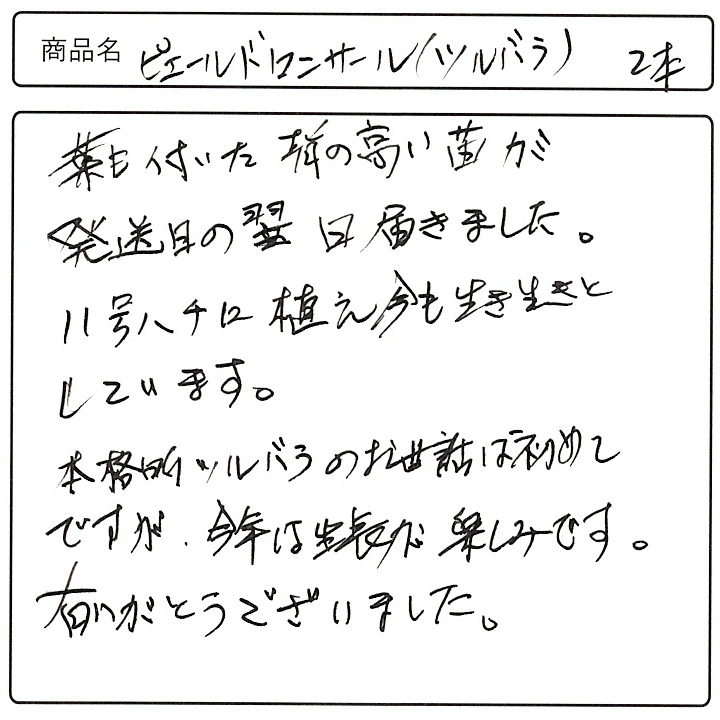 商品名 ピエールドロンサール(ツルバラ) 2本
葉も付いた背の高い苗が
発送日の翌日届きました。
11号ハチに植え今も生き生きと
しています。
本格的ツルバラのお世話は初めて
ですが、今年は生長が楽しみです。
有りがとうございました。